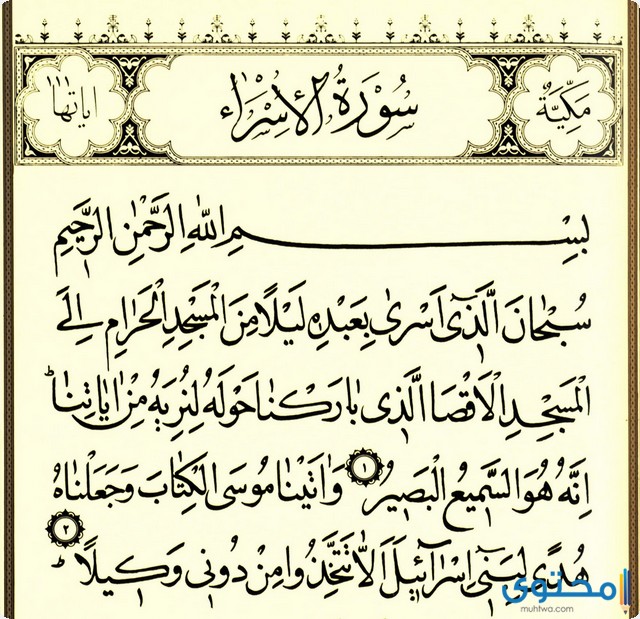 مَكِّيَّةٌ سُورَةُ الْاِسْرَٰاءِ اٰيَاتُهَا ١١١
بِسْمِ اللّٰهِ الرَّحْمٰنِ الرَّحِيمِ
سُبْحَانَ الَّذٓى اَسْرٰى بِعَبْدِهِ لَيْلًا مِنَ الْمَسْجِدِ الْحَرَامِ اِلَى
الْمَسْجِدِ الْاَقْصَا الَّذِى بَارَكْنَا حَوْلَهُ لِنُرِيَهُ مِنْ اٰيَاتِنَاۜ
اِنَّهُ هُوَ السَّمِيعُ الْبَصِيرُ ١ وَاٰتَيْنَا مُوسَى الْكِتَابَ وَجَعَلْنَاهُ
هُدًى لِبَنٓى اِسْرَٓائِلَ اَلَّا تَتَّخِذُوا مِنْ دُونِى وَكِيلًاۜ ٢
محتوى
muhtwa.com